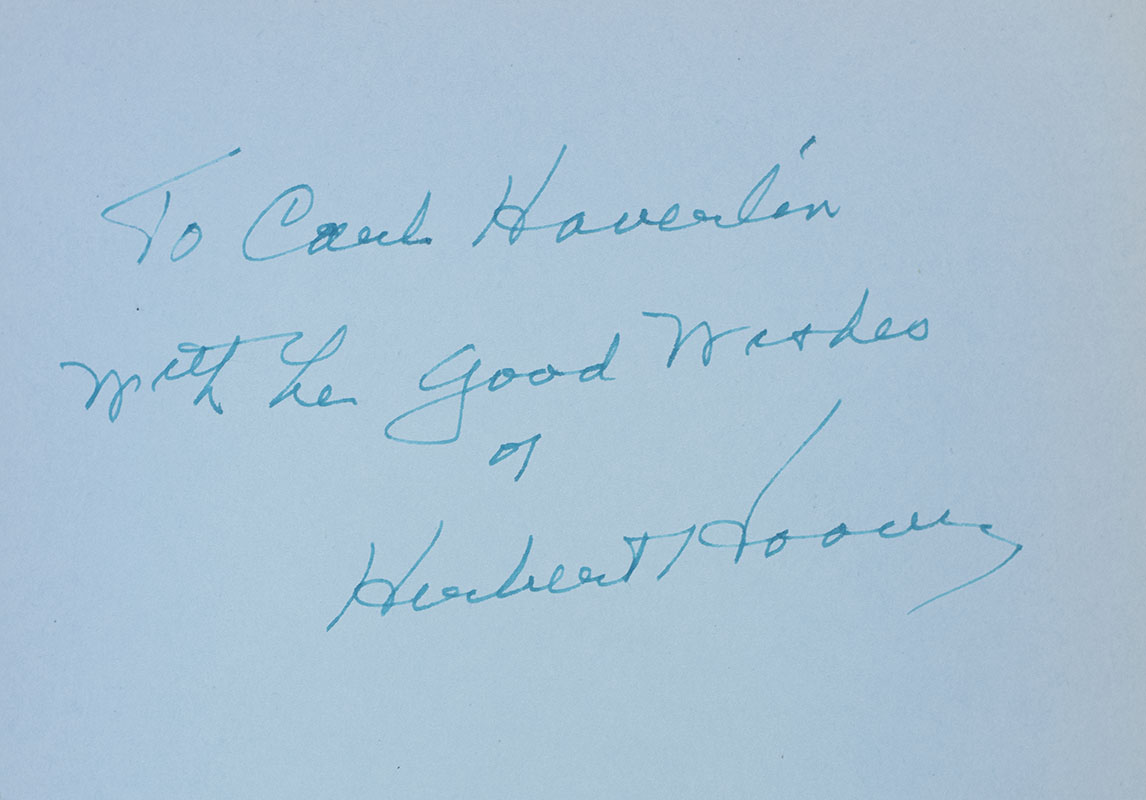 To Carl Haverlin
with the Good Wishes
of
Herbert Hoover